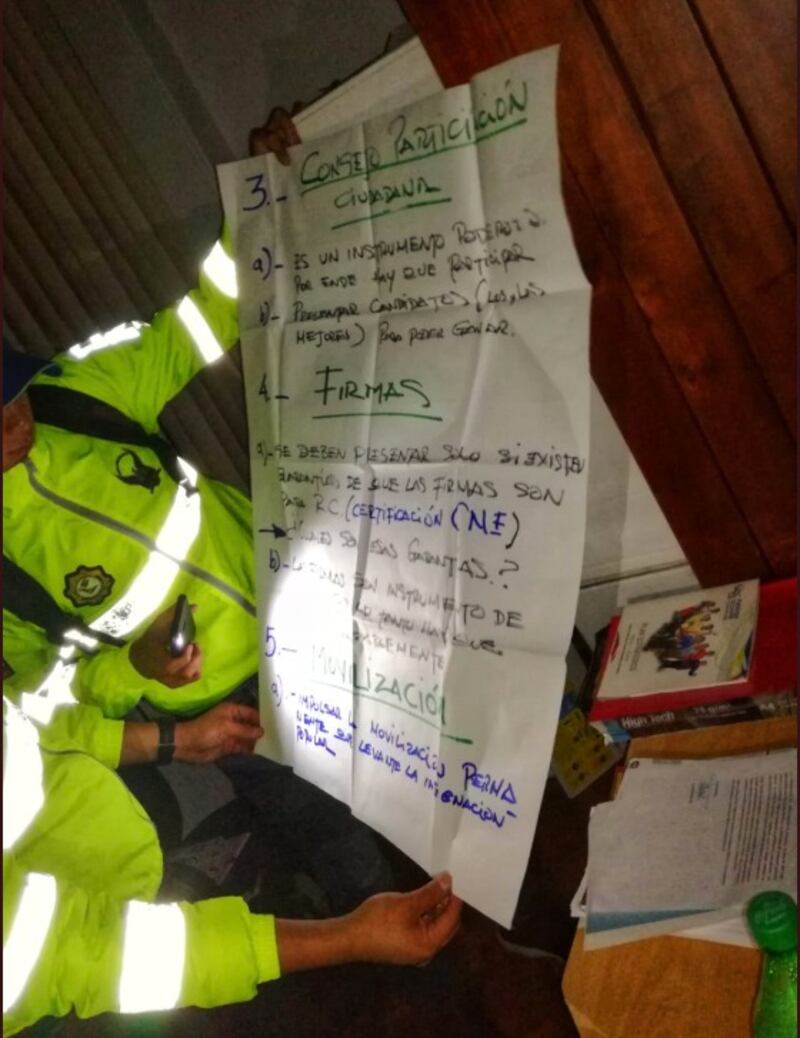 3.- CONSEJO PARTICIPACIÓN
CIUDADANA
a)- ES UN INSTRUMENTO PODEROSO.
POR ENDE HAY QUE PARTICIPAR
b)- PRESENTAR CANDIDATOS (LOS, LAS
MEJORES) PARA PODER GANAR.
4.- FIRMAS
a)- SE DEBEN PRESENTAR SOLO SI EXISTEN
GARANTÍAS DE QUE LAS FIRMAS SON
PARA R.C. (CERTIFICACIÓN CNE)
SON ESAS GARANTAS.?
b)- FIRMAS SON INSTRUMENTO DE
TANTO HAY QUE
5.- MOVILIZACIÓN
a).- IMPULSAR LA MOVILIZACIÓN PERMA
NENTE QUE LEVANTE LA INDIGNACIÓN
POPULAR
High Tech 75 g/m²